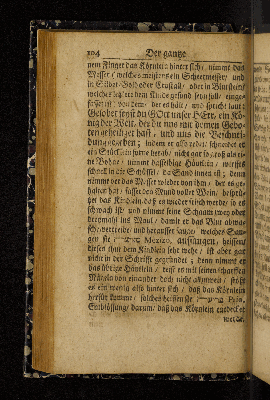 104 Der gantze
nem Finger das Körnlein hinter sich / nimmt das
Messer / welches meistens ein Scheermesser / und
in Silber / Gold oder Crystall / oder in Blustein /
welches letztere dem Kinde gesund seyn soll / einge-
fasset ist / von dem / der es hält / und spricht laut:
Gelobet seyst du GOtt unser HErr, ein Kö-
nig der Welt, der du uns mit denen Gebo-
ten geheiliget hast, und uns die Beschnei-
dung gegeben; indem er also redet / schneidet er
ein Stücklein vorne herab / nicht gar so groß als ei-
ne Bohne / nimmt dasselbige Häutlein / wirffts
schnell in ein Schüssel / da Sand innen ist; denn
nimmt er das Messer wieder von ihm / der es ge-
halten hat / fasset den Mund voller Wein / besprü-
get das Kindlein, daß es wieder frisch werde / so es
schwach ist / und nimmt seine Scham zwey oder
dreymahl ins Maul / damit er das Blut abwa-
sche / vertreibe / und heraus sauge / welches Sau-
gen sie Mezizo, aussaugen, heissen /
dieses thut dem Kindlein sehr wehe / ist aber gar
nicht in der Schrifft gegründet; denn nimmt er
das übrige Häutlein / reist es mit seinen scharffen
Nägeln von einander
ein wenig also hinter sich / daß das Körnlein
herfür komme / solches heissen sie Pria,
Entblössung / darum / daß das Körnlein entdeckt